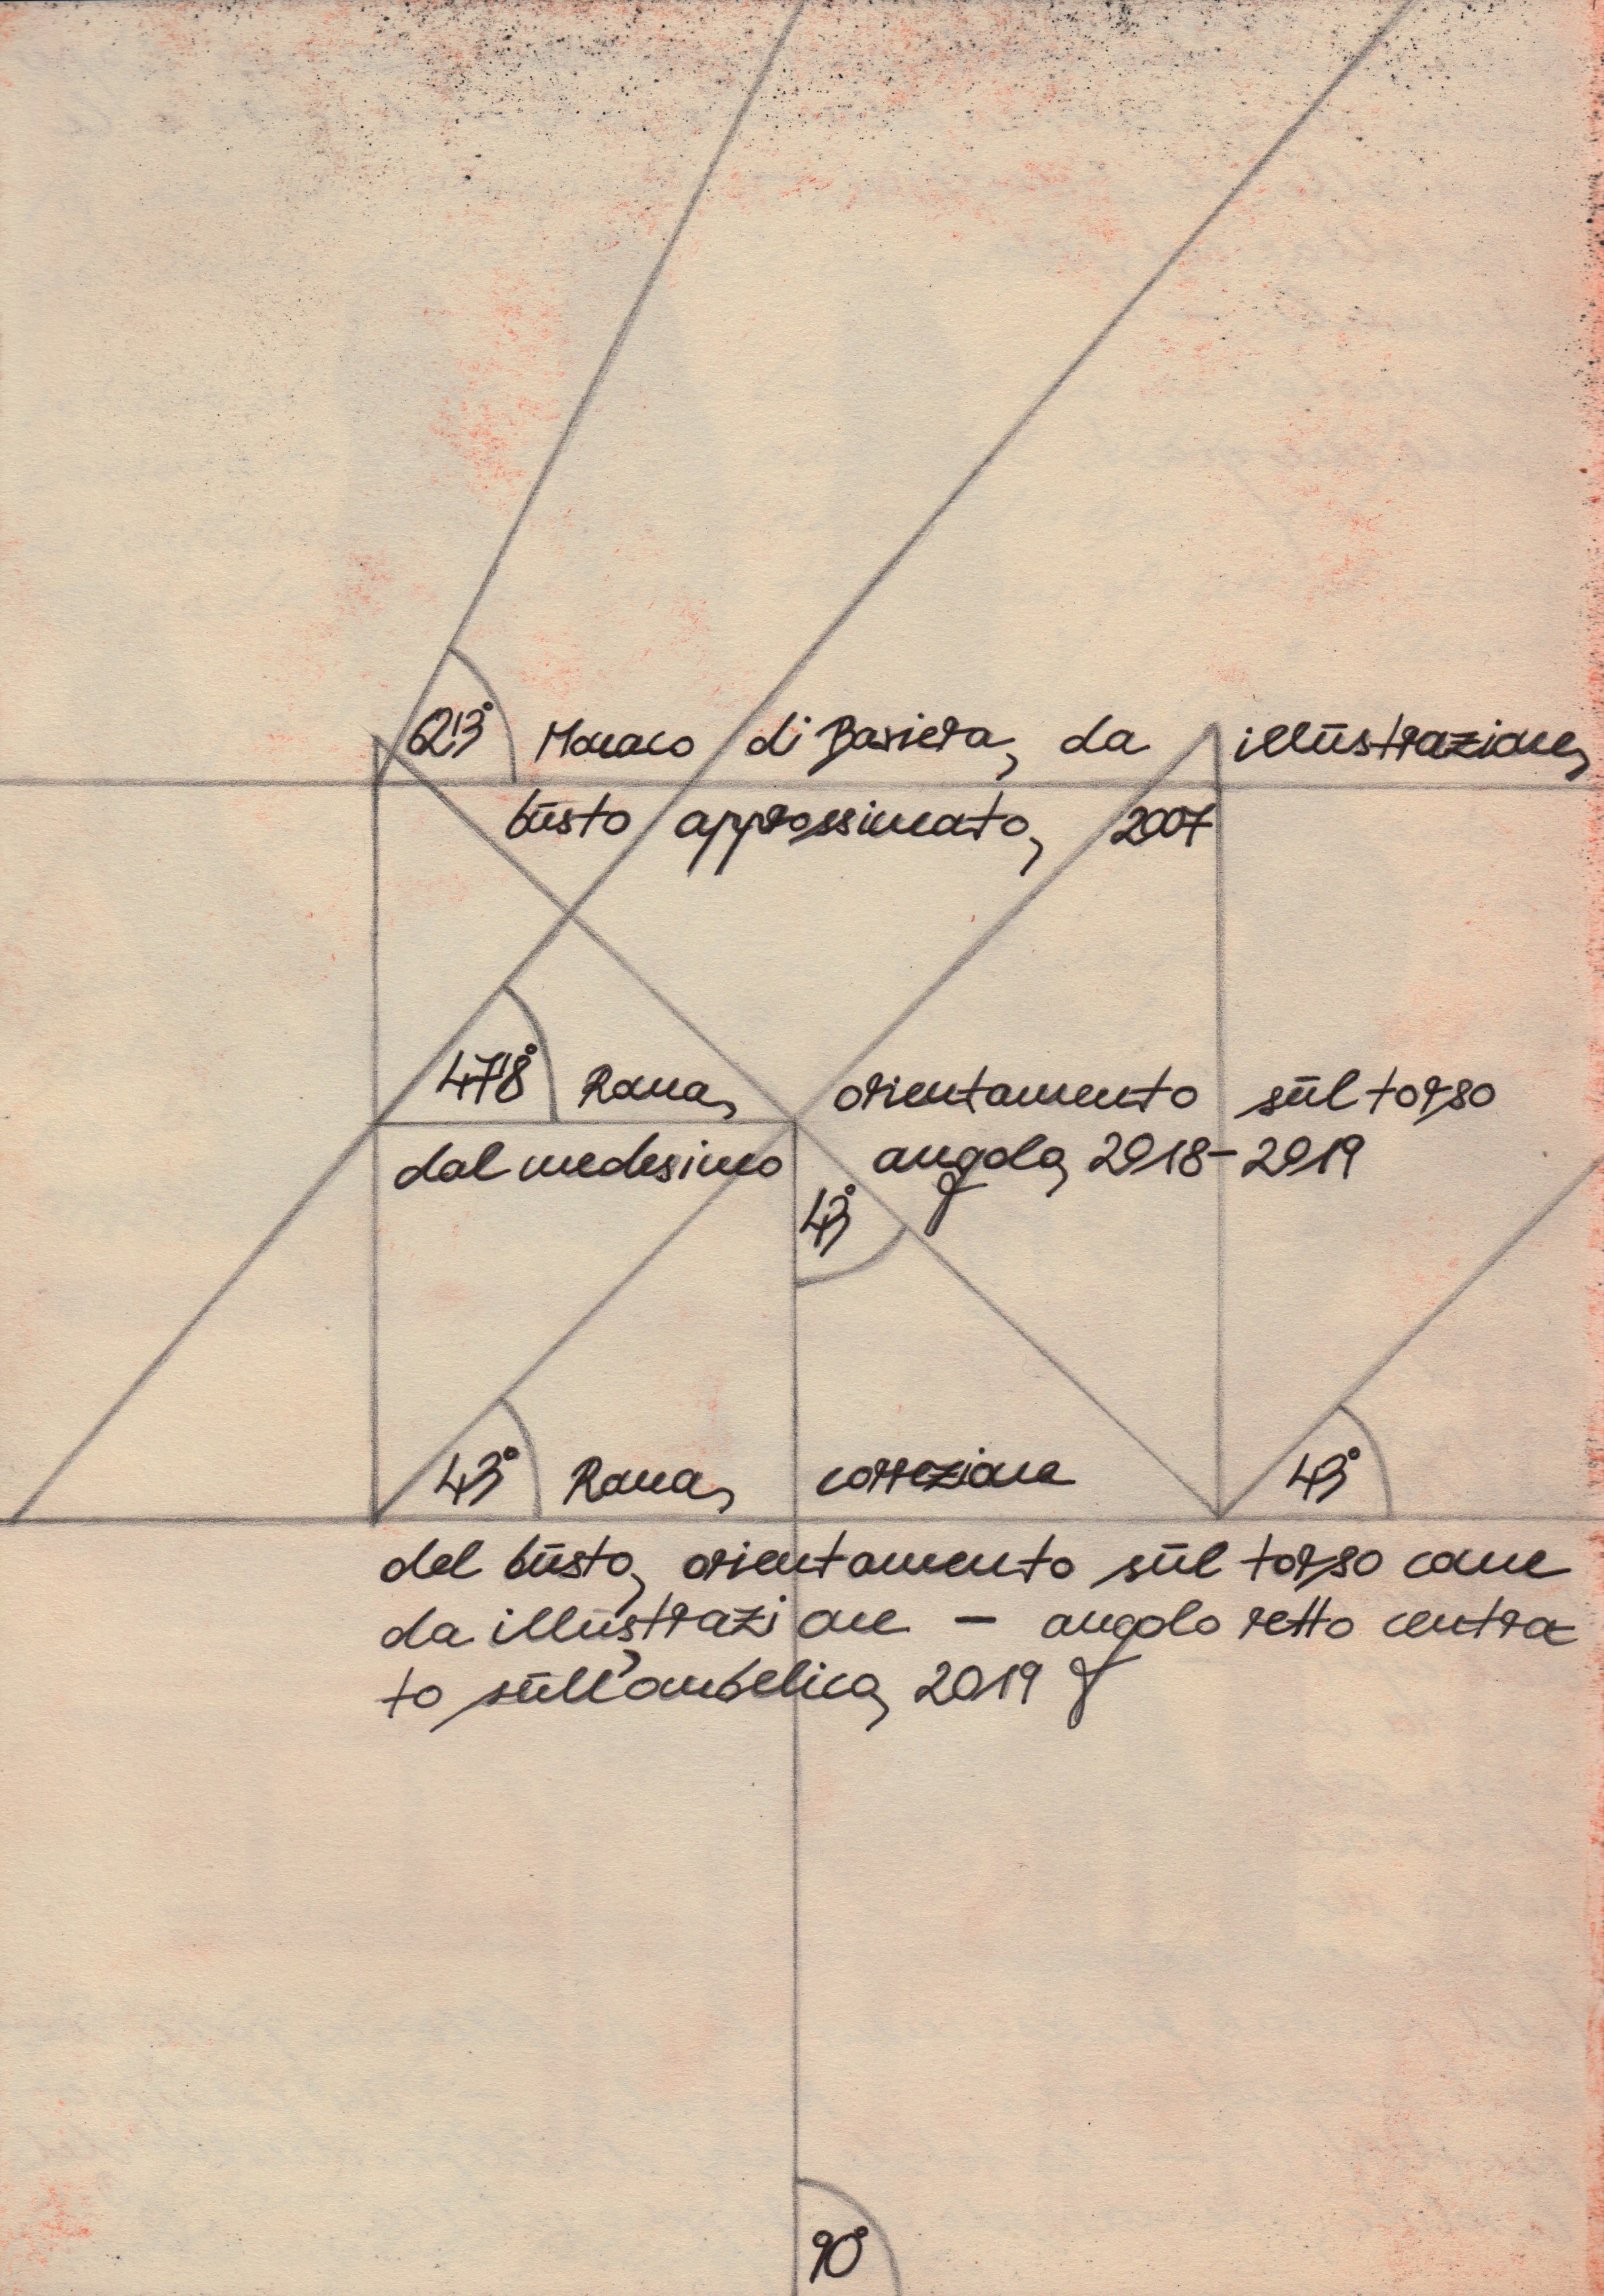 Monaco di Baviera, da illustrazione,
busto approssimato, 2007
47'8° Roma, orientamento sul torso
dal medesimo angolo, 2018-2019
43°
43° Roma, correzione 43°
del busto, orientamento sul torso come
da illustrazione – angolo retto centra
to sull'ombelico, 2019
90°